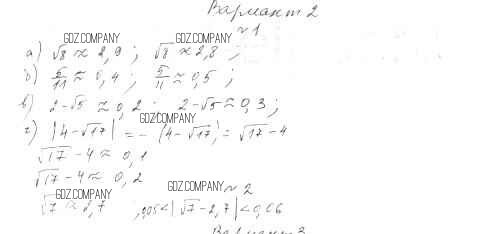 Вариант 2
GDZ.COMPANY GDZ.COMPANY №1
а) √8 ≈ 2,9 ; √8 ≈ 2,8 ;
б) 5/11 ≈ 0,4 ; 5/11 ≈ 0,5 ;
в) 2-√5 ≈ 0,2 ; 2-√5 ≈ 0,3 ;
GDZ.COMPANY
г) |4-√17| = -(4-√17) = √17-4
√17-4 ≈ 0,1
√17-4 ≈ 0,2
GDZ.COMPANY GDZ.COMPANY №2
√7 ≈ 2,7 ; 0,05<|√7-2,7|<0,06
Вариант 3